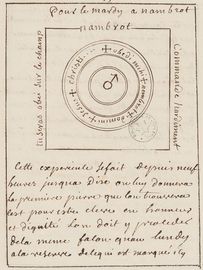 Pour le mardy a nambrot
nambrot
tu seras obei sur le champ
Commande hardiment
Cette experience se fait depuis neuf
heures jusqua dix on luy donnera
la premiere pierre que lon trouvera
est pour estre eleve en honneur
et dignité lon doit y proceder
de la meme façon quau lundy
a la reserve de ce qui est marqué icy